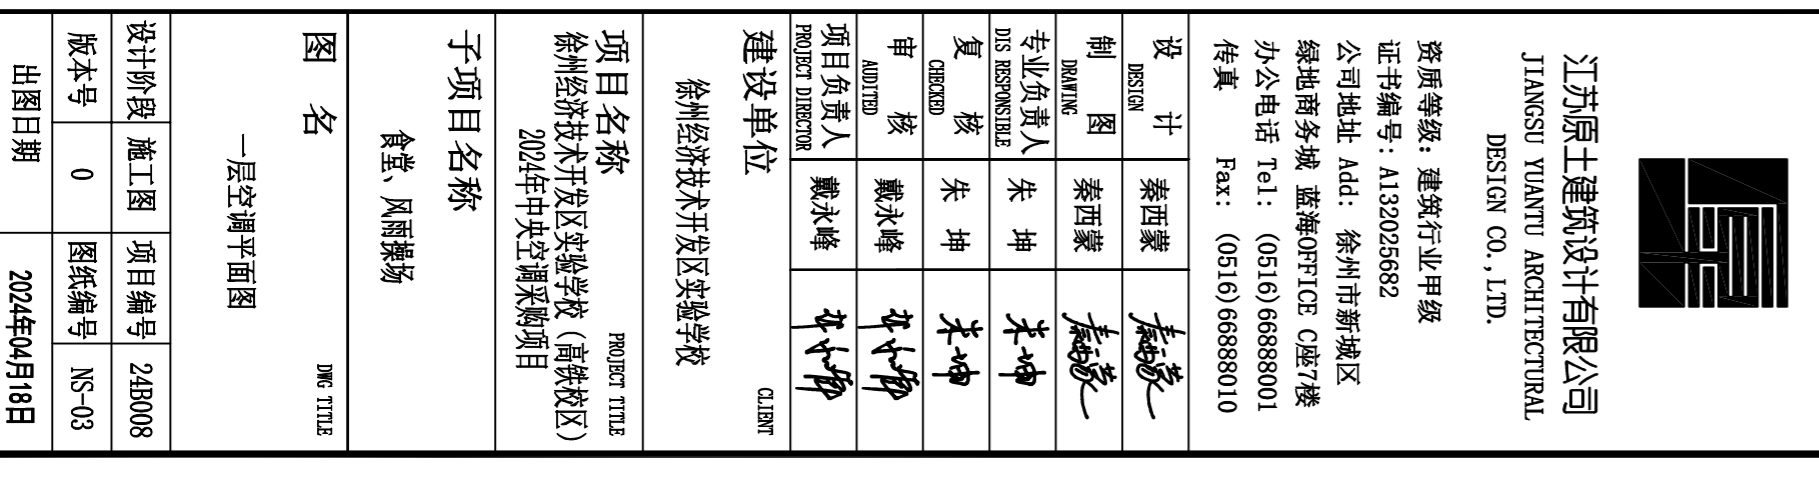 江苏原土建筑设计有限公司
JIANGSU YUANTU ARCHITECTURAL
DESIGN CO.,LTD.
资质等级: 建筑行业甲级
证书编号: A132025682
公司地址 Add: 徐州市新城区
绿地商务城 蓝海OFFICE C座7楼
办公电话 Tel: (0516)66888001
传真 Fax: (0516)66888010
设 计 秦西蒙
DESIGN
制 图 秦西蒙
DRAWING
专业负责人 朱 坤
DIS RESPONSIBLE
复 核 朱 坤
CHECKED
审 核 戴永峰
AUDITED
项目负责人 戴永峰
PROJECT DIRECTOR
建设单位 CLIENT
徐州经济技术开发区实验学校
项目名称 PROJECT TITLE
徐州经济技术开发区实验学校（高铁校区）
2024年中央空调采购项目
子项目名称
食堂、风雨操场
图 名 DWG TITLE
一层空调平面图
设计阶段 施工图 项目编号 24B008
版本号 0 图纸编号 NS-03
出图日期 2024年04月18日